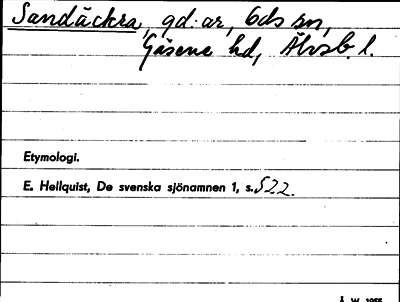 Sandäckra, gd. ar, Öds sn,
Gäsene hd, Älvsb. l.
Etymologi.
E. Hellquist, De svenska sjönamnen 1, s. 522.
Å. W. 1955